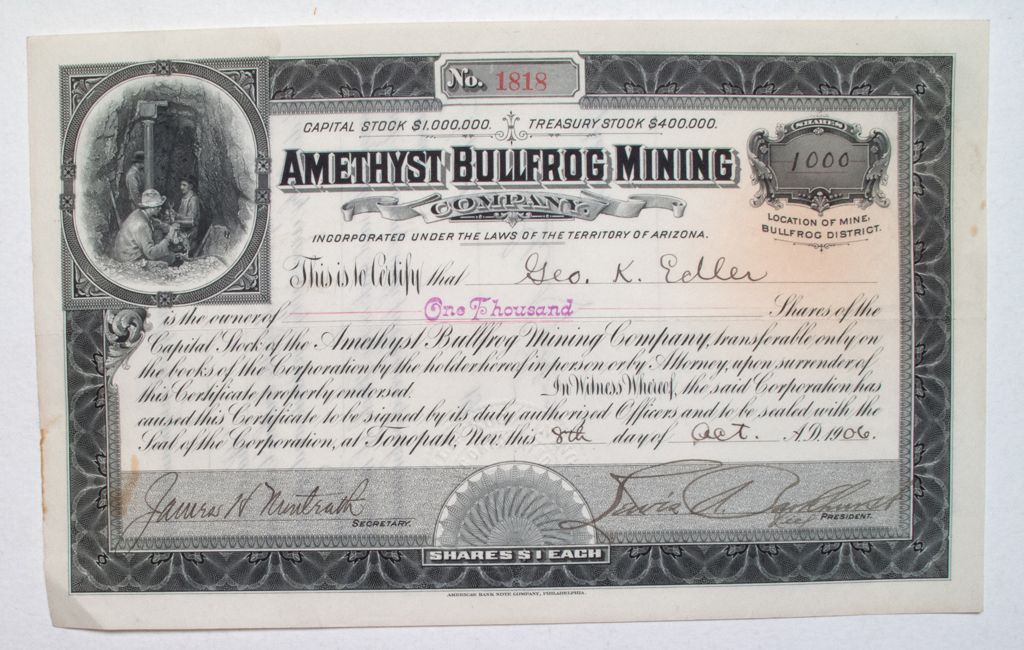 No. 1818
CAPITAL STOCK $1,000,000. TREASURY STOCK $400,000.
AMETHYST BULLFROG MINING
COMPANY.
SHARES
1000
LOCATION OF MINE,
BULLFROG DISTRICT.
INCORPORATED UNDER THE LAWS OF THE TERRITORY OF ARIZONA.
This is to Certify that Geo. K. Edler
is the owner of One Thousand Shares of the
Capital Stock of the Amethyst Bullfrog Mining Company, transferable only on
the books of the Corporation by the holder hereof in person or by Attorney, upon surrender of
this Certificate properly endorsed. In Witness Whereof, the said Corporation has
caused this Certificate to be signed by its duly authorized Officers and to be sealed with the
Seal of the Corporation, at Tonopah, Nev. this 8th day of Oct. A.D. 1906.
James H
SECRETARY.
PRESIDENT.
SHARES $1 EACH
AMERICAN BANK NOTE COMPANY, PHILADELPHIA.